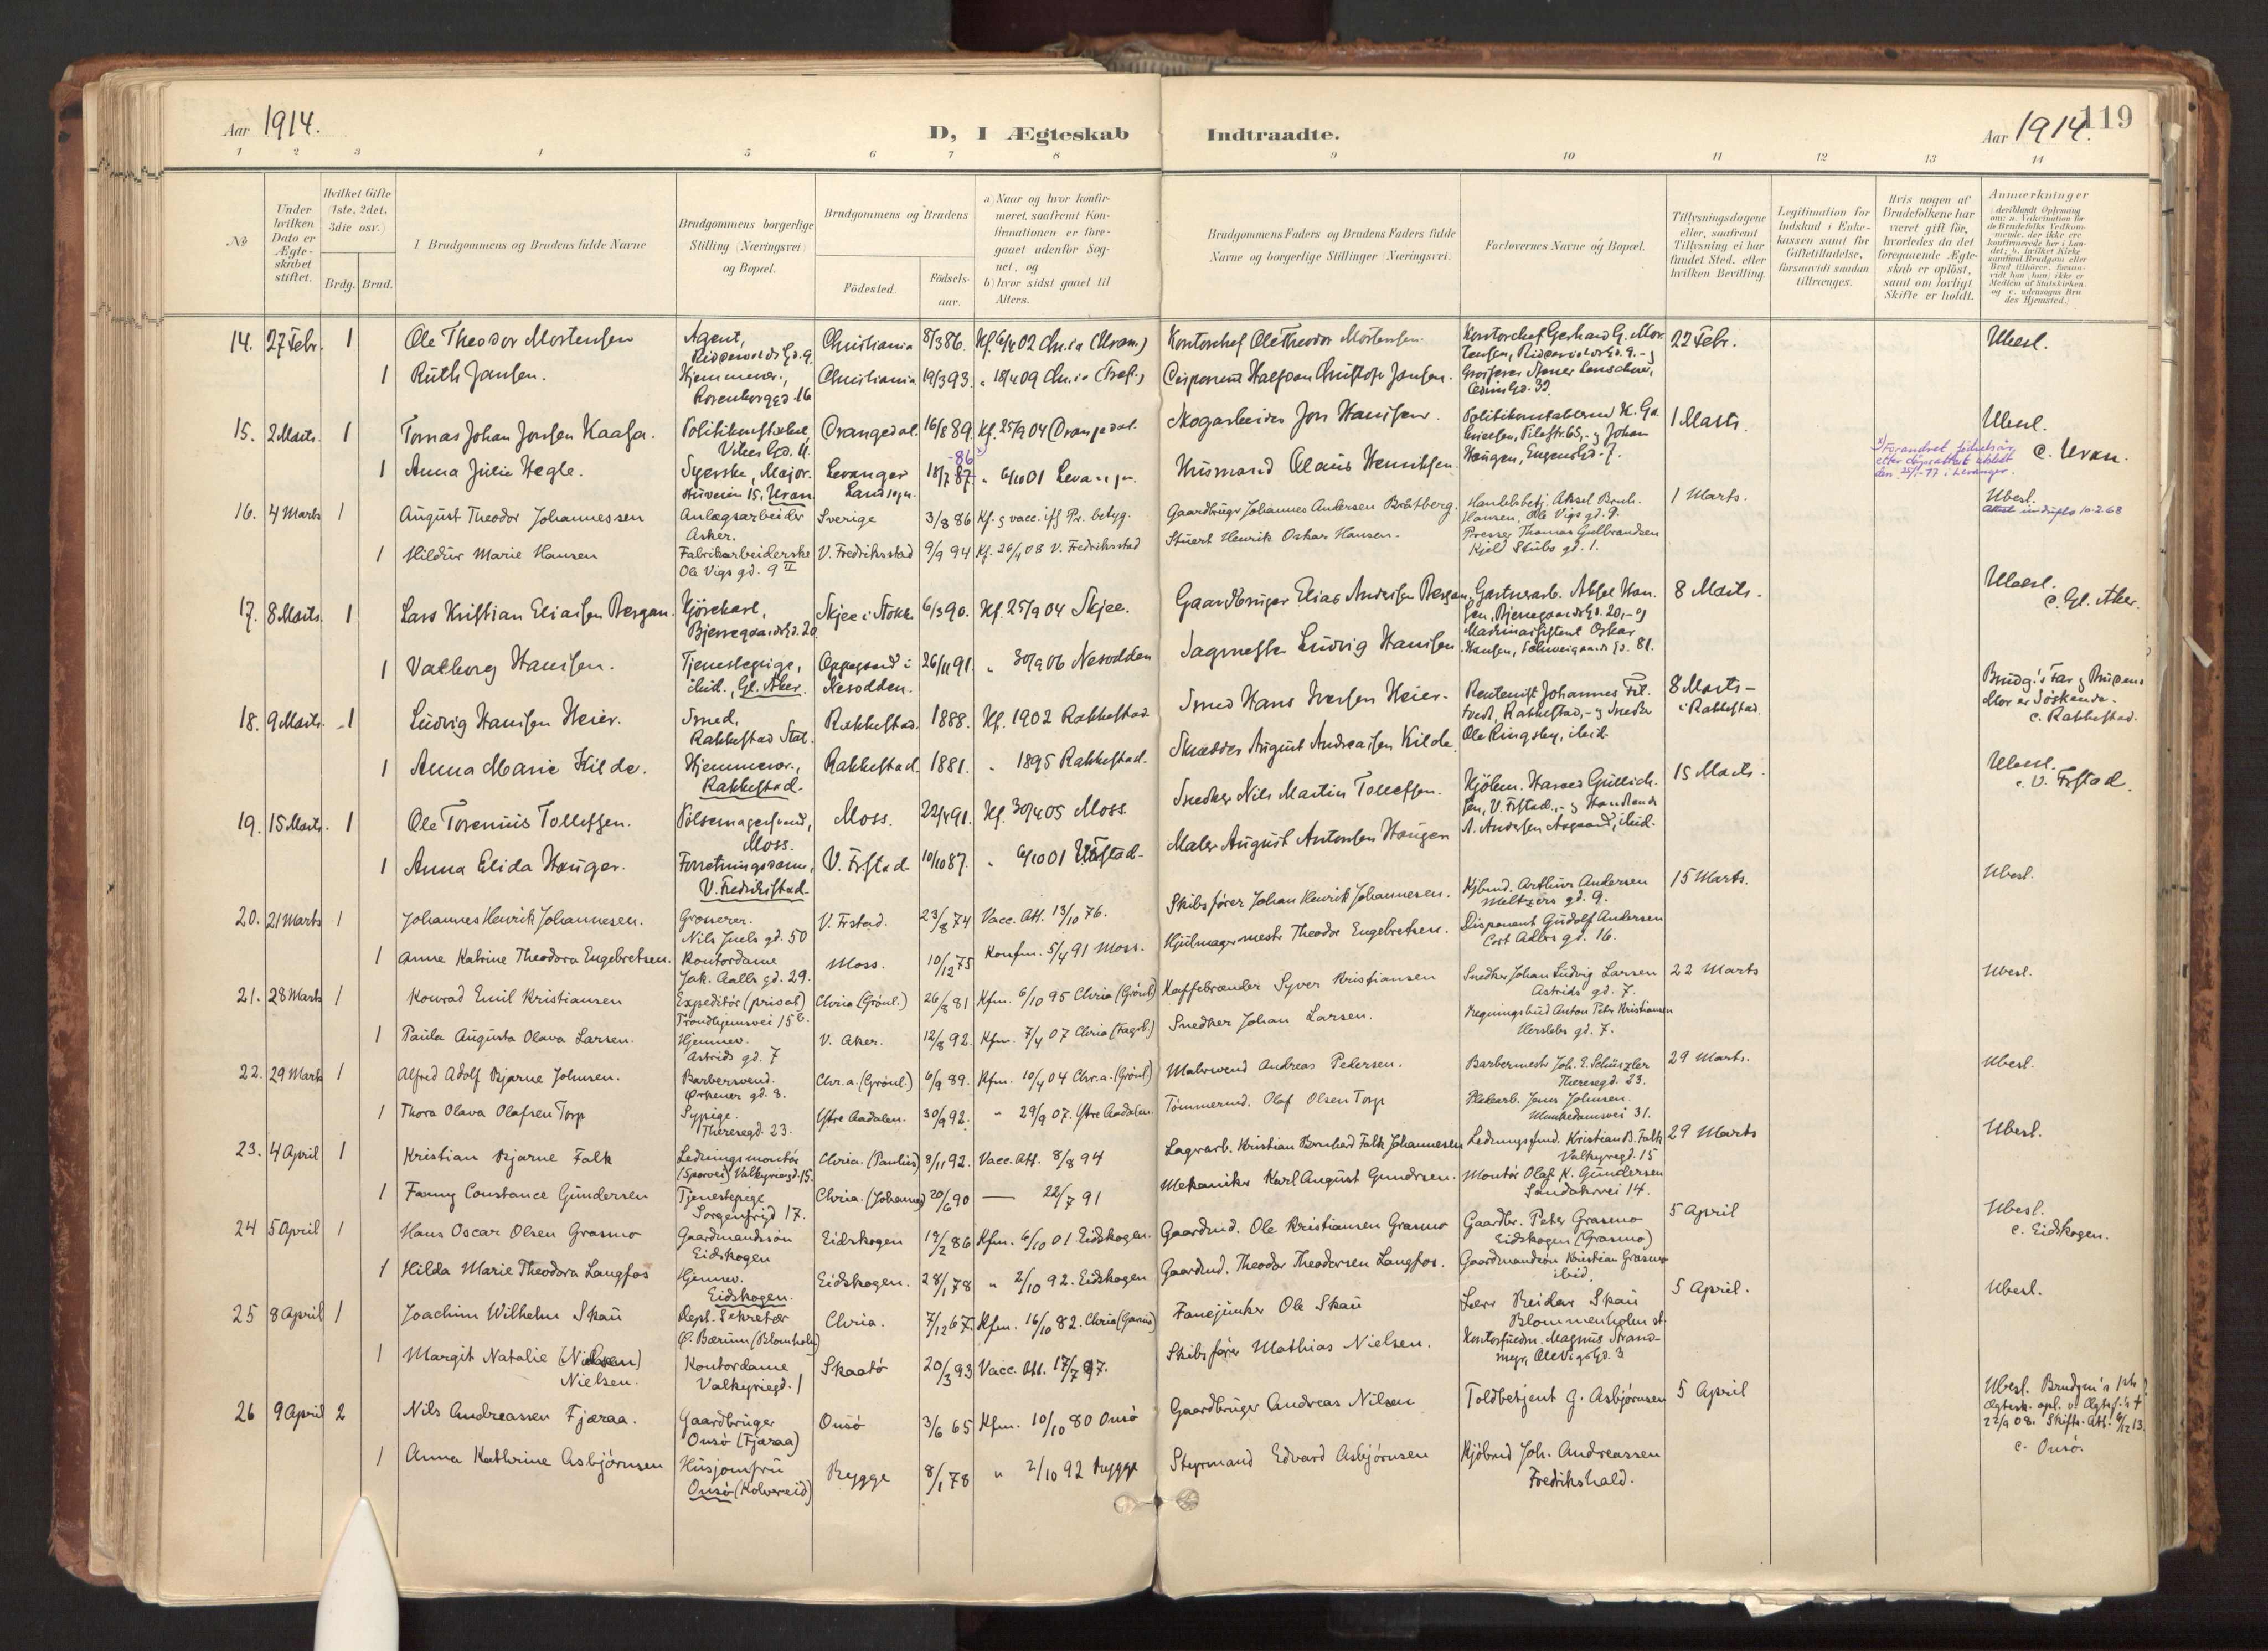 Aar 1914.
D, I Ægteskab Indtraadte.
Aar 1914.
119
1 2 3 4 5 6 7 8 9 10 11 12 13 14
No
Under hvilken Dato er Ægteskabet stiftet.
Hvilket Gifte (1ste, 2det, 3die osv.)
Brdg. Brud.
I Brudgommens og Brudens fulde Navne
Brudgommens borgerlige Stilling (Næringsvei) og Bopæl.
Brudgommens og Brudens
Fødested.
Fødsels-aar.
a) Naar og hvor konfir-
meret, saafremt Kon-
firmationen er fore-
gaaet udenfor Sog-
net, og
b) hvor sidst gaaet til
Alters.
Brudgommens Faders og Brudens Faders fulde
Navne og borgerlige Stillinger (Næringsvei).
Forlovernes Navne og Bopæl.
Tillysningsdagene
eller, saafremt
Tillysning ei har
fundet Sted, efter
hvilken Bevilling.
Legitimation for
Indskud i Enke-
kassen samt for
Giftetilladelse,
forsaavidt saadan
tiltrænges.
Hvis nogen af
Brudefolkene har
været gift før,
hvorledes da det
foregaaende Ægte-
skab er opløst,
samt om lovligt
Skifte er holdt.
Anmerkninger
14. 27 Febr. 1 Ole Theodor Mortensen Agent, Christiania 8/3 86. Kf. 6/4 02 Chr.ia (Uran.) Kontorchef Ole Theodor Mortensen. Kontorchef Gerhard G. Mor- 22 Febr. Ubesl.
1 Ruth Jansen. Hjemmevær., Rosenborggd. 16 Christiania 19/3 93. " 18/4 09 Disponent Halfdan Christofer Jansen.
15. 2 Marts. 1 Tomas Johan Jonsen Kaasa. Politikonstabel, Drangedal. 16/8 89. Kf. 25/9 04 Drangedal. Skogarbeider Jon Hansen. 1 Marts. Ubesl.
1 Anna Julie Hegle. Syerske, Major- stuveien 15, Uran. Levanger Landsogn. 18/7 87 -86 " 6/10 01 Levanger. Husmand Olaus Henriksen. Haugen, Eugensgd. 7. c. Uran.
x) Forandret fødselsår
etter dåpsattest utstedt
den 25/1-77 i Levanger.
16. 4 Marts 1 August Theodor Johannessen Anlægsarbeider Asker. Sverige 3/8 86 Kf. & vacc. ifl Pr. betyg. Gaardbruger Johannes Andersen Bråtberg. Handelsbetj. Aksel Bruh. Hansen, Ole Vigs gd. 9. 1 Marts. Ubesl.
Attest in duplo 10-2.68
1 Hildur Marie Hansen Fabrikarbeiderske Ole Vigs gd. 9 II V. Fredriksstad 9/9 94 Kf. 26/4 08 V. Fredriksstad Stuert Henrik Oskar Hansen. Presser Thomas Gulbrandsen Kjeld Stubs gd. 1.
17. 8 Marts. 1 Lars Kristian Eliassen Bergan. Kjørekarl, Bjerregaardsgd. 20 Skjee i Stokke 6/3 90. Kf. 25/9 04 Skjee. Gaardbruger Elias Andersen Bergan. Gartnerarb. Aksel Han- sen, Bjerregaardsgd. 20,- og 8 Marts. Ubesl.
c. Gl. Aker.
1 Valborg Hansen. Tjenestepige, ibid., Gl. Aker. Oppegaard i Nesodden. 26/11 91. " 30/9 06 Nesodden Sagmester Ludvig Hansen Maskinassistent Oskar Hansen, Schweigaards gd. 81.
18. 9 Marts. 1 Ludvig Hansen Heier. Smed, Rakkestad Stat. Rakkestad. 1888. Kf. 1902 Rakkestad. Smed Hans Iversen Heier. Rentenist Johannes Fil- tvedt, Rakkestad,- og Snedker 8 Marts - i Rakkestad. Brudg.'s Far og Brudens
Mor er Søskende.
c. Rakkestad.
1 Anna Marie Kilde. Hjemmevær., Rakkestad. Rakkestad. 1881. " 1895 Rakkestad. Skrædder August Andreassen Kilde. Ole Ringsby, ibid.
19. 15 Marts. 1 Ole Torenius Tollefsen. Pølsemagersvend, Moss. Moss. 22/4 91. Kf. 30/4 05 Moss. Snedker Nils Martin Tollefsen. Kjølem. Harald Gullich- sen, V. Frstad,- og Handlende 15 Marts. Ubesl.
c. V. Frstad.
1 Anna Elida Hauger. Forretningsdame, V. Fredrikstad. V. Frstad. 10/10 87. " 6/10 01 V. Frstad. Maler August Antonsen Haugen A. Andersen Aagaard, ibid.
20. 21 Marts 1 Johannes Henrik Johannesen. Grosserer. Nils Juels gd. 50 V. Frstad. 23/8 74 Vacc. Att. 13/10 76. Skibsfører Johan Henrik Johannesen. Kjbmd. Arthur Andersen Meltzers gd. 9. 15 Marts. Ubesl.
1 Anne Katrine Theodora Engebretsen. Kontordame Jak. Aalls gd. 29. Moss. 10/12 75 Konfm. 5/4 91 Moss. Hjulmagermester Theodor Engebretsen. Disponent Gudolf Andersen Cort Adlers gd. 16.
21. 28 Marts 1 Konrad Emil Kristiansen Expeditør (privat) Trondhjemsvei 15 b. Chria (Grønl.) 26/8 81 Kfm. 6/10 95 Chria (Grønl.) Kaffebrænder Syver Kristiansen Snedker Johan Ludvig Larsen Astrids gd. 7. 22 Marts Ubesl.
1 Paula Augusta Olava Larsen. Hjemmev. Astrids gd. 7 V. Aker. 12/8 92. Kfm. 7/4 07 Chria (Fagerb.) Snedker Johan Larsen. Regningsbud Anton Peter Kristiansen Herslebs gd. 7.
22. 29 Marts 1 Alfred Adolf Bjarne Johnsen. Barbersvend. Ørkener gd. 8. Chr.a. (Grønl.) 6/9 89. Kfm. 10/4 04 Chr.a. (Grønl.) Malersvend Andreas Pedersen. Barbermester Joh. E. Schüszler Theresegd. 23. 29 Marts. Ubesl.
1 Thora Olava Olafsen Torp Sypige. Theresegd. 23. Ytre Aadalen. 30/9 92. " 29/9 07. Ytre Aadalen. Tømmermd. Olaf Olsen Torp Jens Johnsen. Munkedamsvei 31.
23. 4 April 1 Kristian Bjarne Falk Ledningsmontør (Sporvei) Valkyriegd. 15. Chria. (Paulus) 8/11 92. Vacc. Att. 8/8 94 Lagerarb. Kristian Bernhard Falk Johannesen Kristian B. Falk Valkyriegd. 15 29 Marts Ubesl.
1 Fanny Constance Gundersen Tjenestepige Sorgenfrigd 17. Chria. (Johannes) 20/6 90 — 22/7 91 Mekaniker Karl August Gundersen. Montør Olaf K. Gundersen Sandakervei 14.
24 5 April 1 Hans Oscar Olsen Grasmo Gaardmandssøn Eidskogen Eidskogen 19/2 86 Kfm. 6/10 01 Eidskogen. Gaardmd. Ole Kristiansen Grasmo Gaardbr. Peter Grasmo Eidskogen (Grasmo) 5 April Ubesl.
c. Eidskogen.
1 Hilda Marie Theodora Langfos Hjemmev. Eidskogen. Eidskogen. 28/1 78 " 2/10 92. Eidskogen Gaardmd. Theodor Theodorsen Langfos. Gaardmandsøn Kristian Grasmo ibid.
25 8 April 1 Joachim Wilhelm Skau Dept. Sekretær Ø. Bærum (Blomholm) Chria. 7/12 67. Kfm. 16/10 82. Chria (Garnis) Fanejunker Ole Skau Reidar Skau Blommenholm st. 5 April. Ubesl.
1 Margit Natalie Nielsen. Kontordame Valkyriegd. 1 Skaatø 20/3 93 Vacc. Att. 17/7 97. Skibsfører Mathias Nielsen. Magnus Strand- myr, Ole Vigs gd. 3
26 9 April 2 Nils Andreassen Fjæraa. Gaardbruger Onsø (Fjæraa) Onsø 3/6 65 Kfm. 10/10 80 Onsø Gaardbruger Andreas Nilsen Toldbetjent G. Asbjørnsen 5 April Ubesl. Brudgm's 1ste
Ægtesk. opl. v. Ægtef.'s †
22/9 08. Skifte. Att. 6/12 13.
c. Onsø.
1 Anna Kathrine Asbjørnsen Husjomfru Onsø (Kolvereid) Rygge 8/1 78 " 2/10 92 Rygge Styrmand Edvard Asbjørnsen Kjøbmd Joh. Andreassen Fredrikshald.